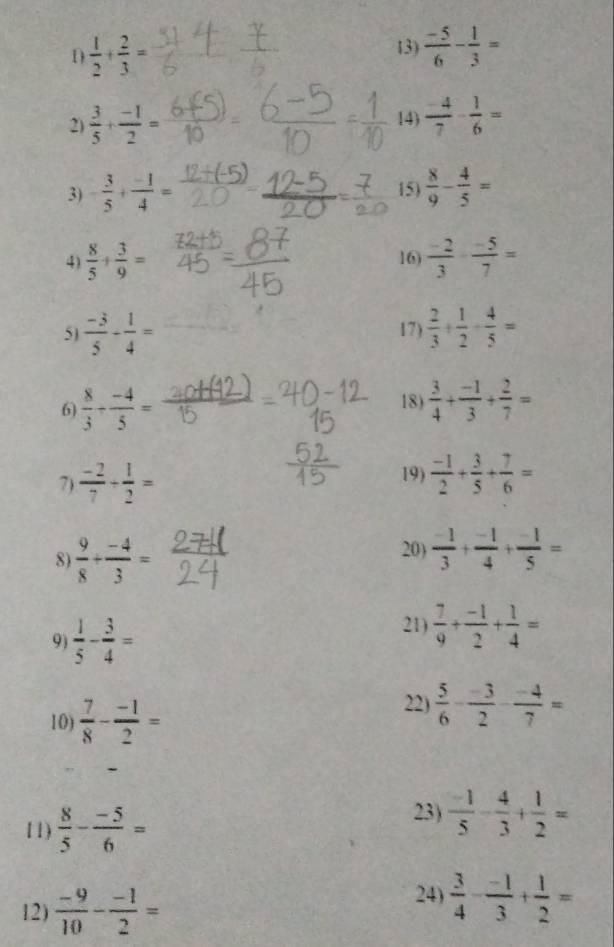 1) 1/2 + 2/3 = 3+4/6 7/6
2) 3/5 + -1/2 = 6+(-5)/10 = 6-5/10 = 1/10
3) -3/5 + -1/4 = 12+(-5)/20 = 12-5/20 = 7/20
4) 8/5 + 3/9 = 72+15/45 = 87/45
5) -3/5 + 1/4 =
6) 8/3 + -4/5 = 40+(-12)/15 = 40-12/15
52/15
7) -2/7 + 1/2 =
8) 9/8 + -4/3 = 27+/24
9) 1/5 - 3/4 =
10) 7/8 - -1/2 =
11) 8/5 - -5/6 =
12) -9/10 - -1/2 =
13) -5/6 - 1/3 =
14) -4/7 - 1/6 =
15) 8/9 - 4/5 =
16) -2/3 - -5/7 =
17) 2/3 + 1/2 + 4/5 =
18) 3/4 + -1/3 + 2/7 =
19) -1/2 + 3/5 + 7/6 =
20) -1/3 + -1/4 + -1/5 =
21) 7/9 + -1/2 + 1/4 =
22) 5/6 - -3/2 - -4/7 =
23) -1/5 - 4/3 + 1/2 =
24) 3/4 - -1/3 + 1/2 =